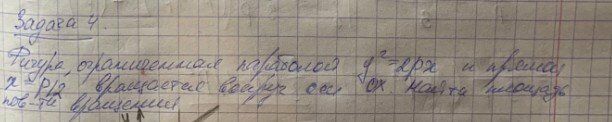 Задача 4.
Фигура, ограниченная параболой y²=2px и прямой
x=P/2 вращается вокруг оси ox. Найти площадь
пов-ти вращения